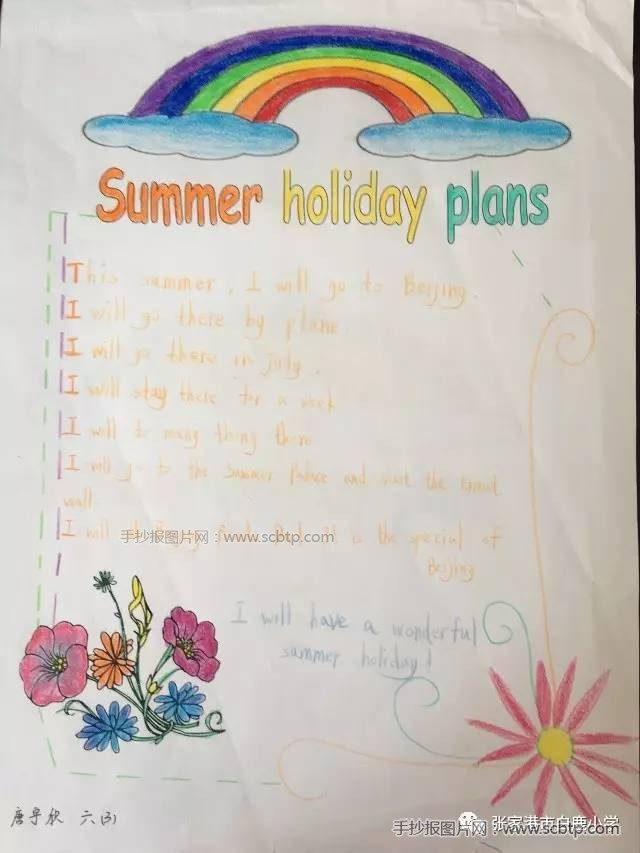 Summer holiday plans
This summer, I will go to Beijing.
I will go there by plane.
I will go there in july.
I will stay there for a week
I will do many thing there
I will go to the Summer Palace and visit the Great
wall.
I will Beijing it is the special of
手抄报图片网:www.scbtp.com
Beijing
I will have a wonderful
summer holiday!
唐宇欣 六(3)
张家港市白鹿小学
手抄报图片网:www.scbtp.com